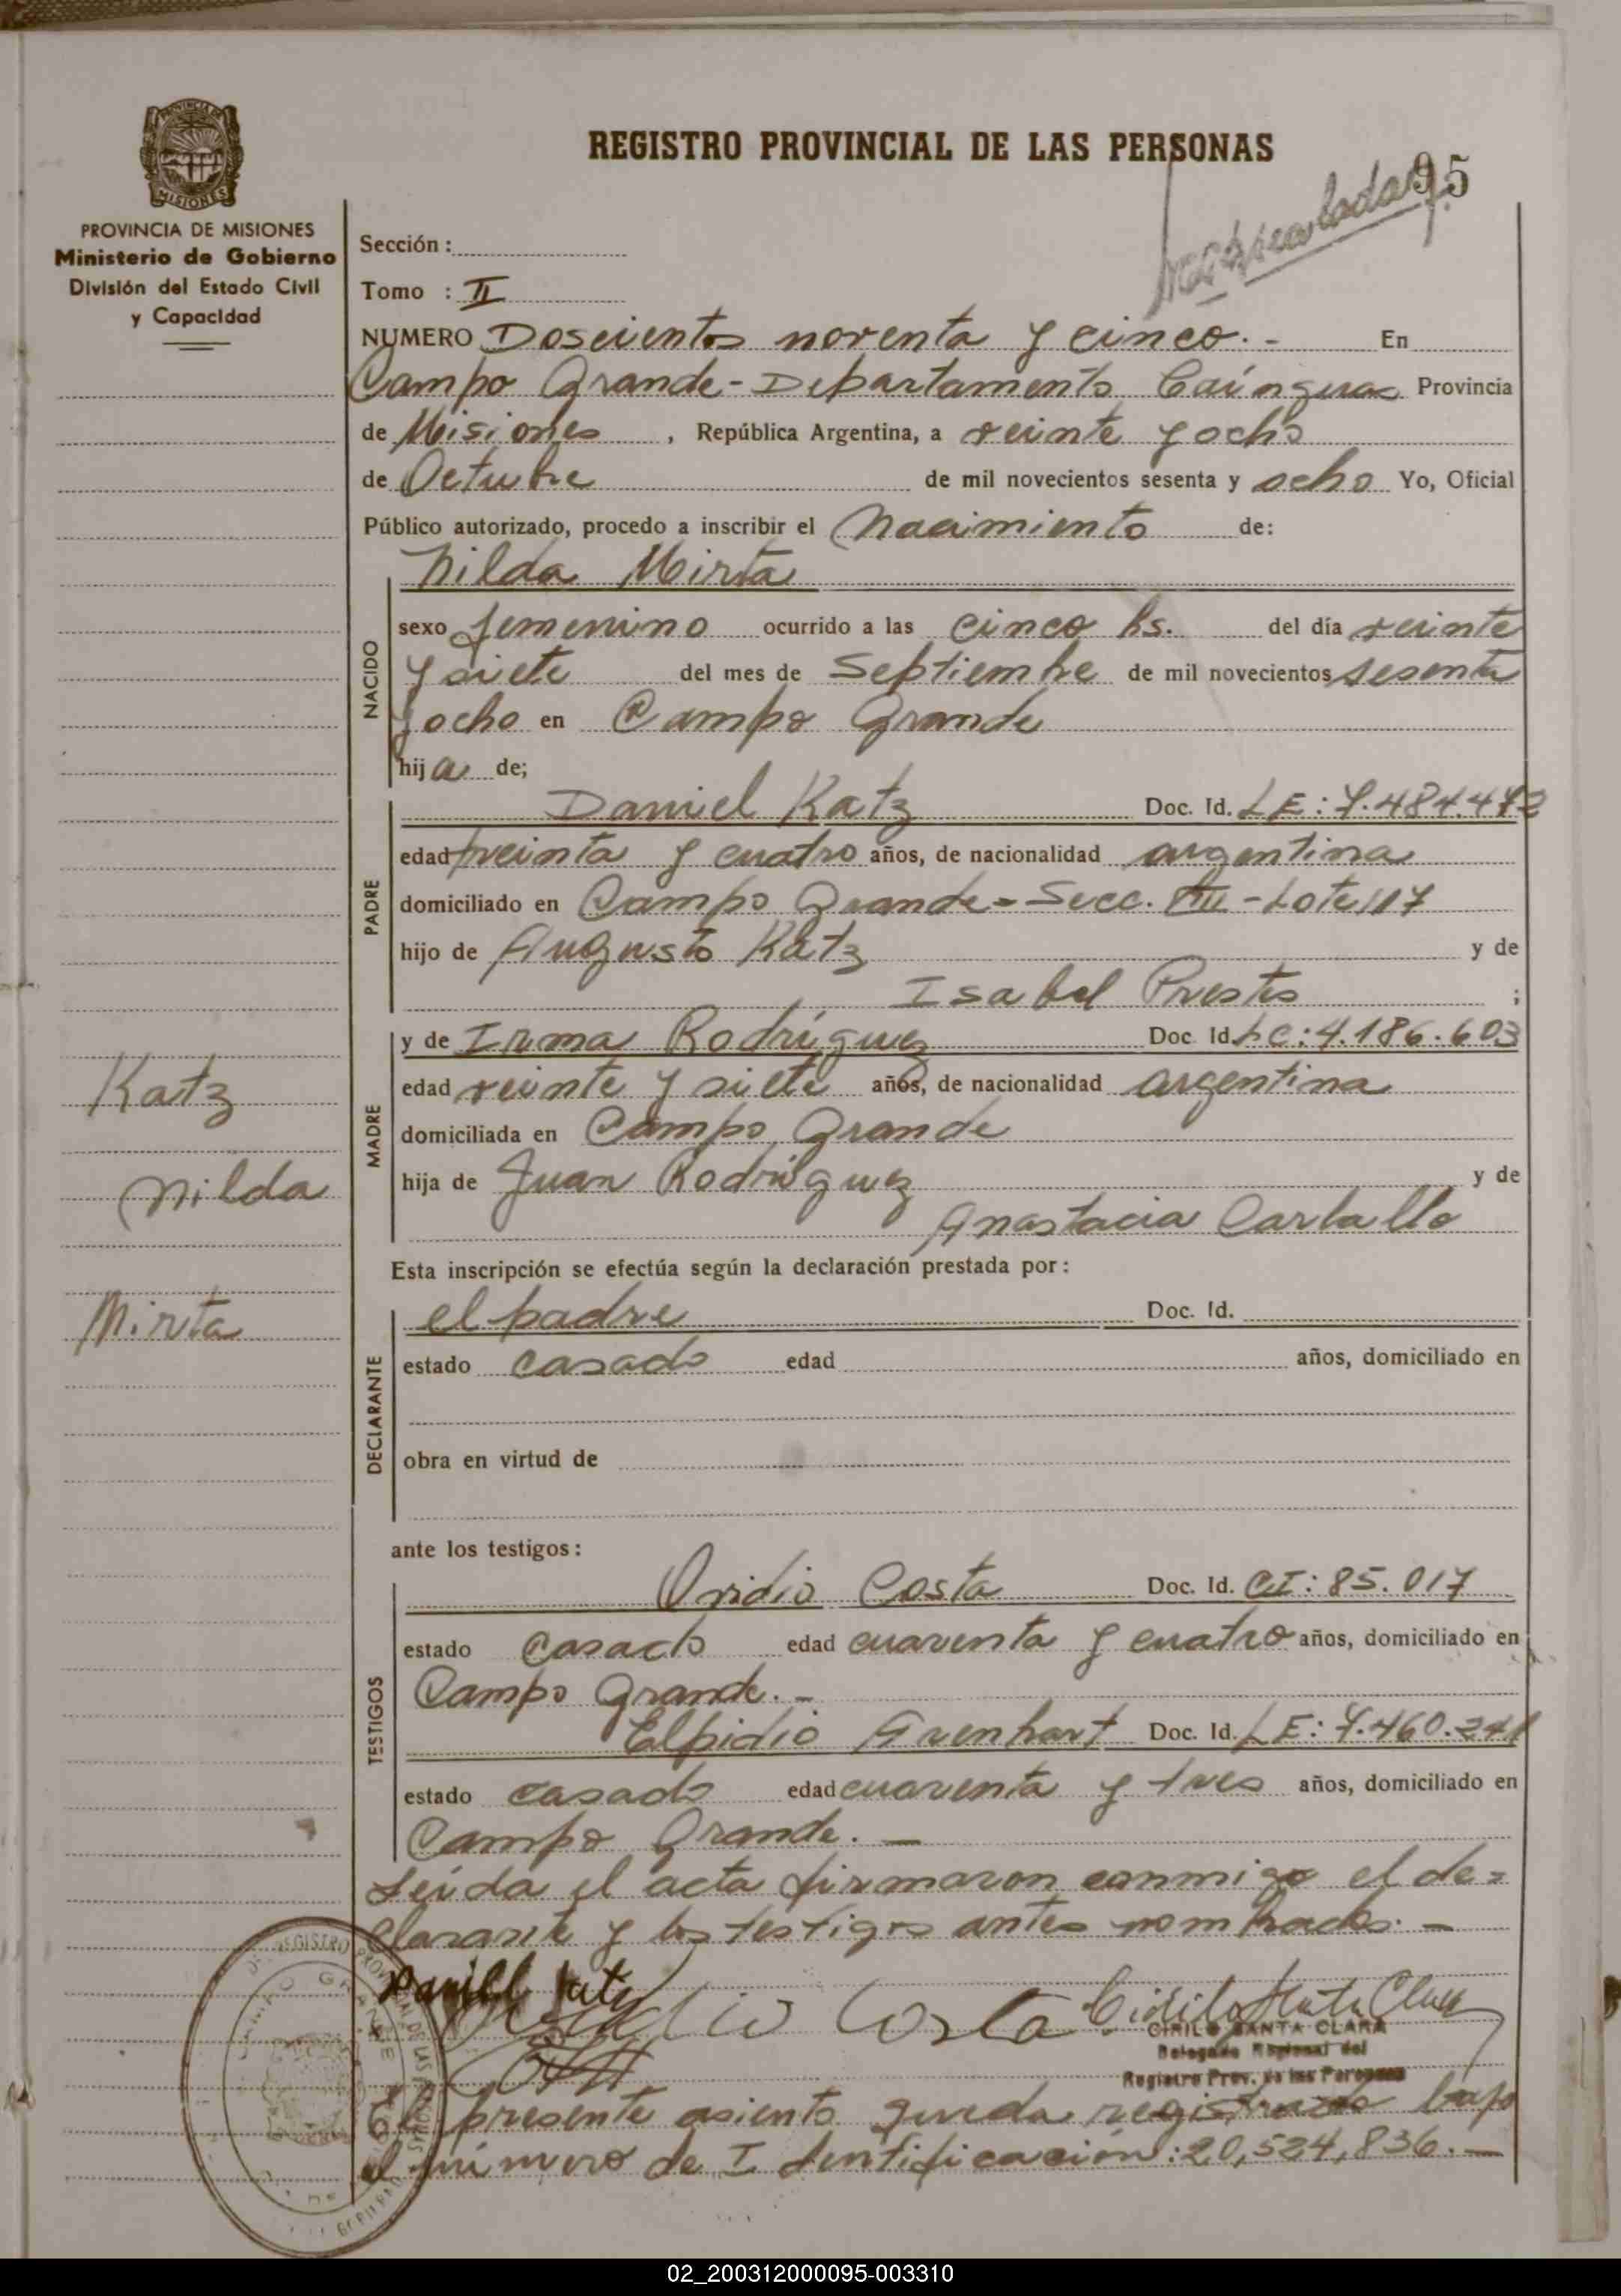 REGISTRO PROVINCIAL DE LAS PERSONAS
95
PROVINCIA DE MISIONES
Ministerio de Gobierno
División del Estado Civil
y Capacidad
Sección :
Tomo : II
NUMERO Doscientos noventa y cinco.- En
Campo Grande - Departamento Caínguas Provincia
de Misiones , República Argentina, a veinte y ocho
de Octubre de mil novecientos sesenta y ocho Yo, Oficial
Público autorizado, procedo a inscribir el Nacimiento de:
Nilda Mirta
NACIDO
sexo femenino ocurrido a las cinco hs. del día veinte
y siete del mes de Septiembre de mil novecientos sesenta
y ocho en Campo Grande
hija de;
PADRE
Daniel Katz Doc. Id. LE: 7.484.472
edad treinta y cuatro años, de nacionalidad argentina
domiciliado en Campo Grande - Secc. - Lote 117
hijo de Augusto Katz y de
Isabel Prestes ;
MADRE
y de Irma Rodríguez Doc. Id. LC: 4.186.603
edad veinte y siete años, de nacionalidad argentina
domiciliada en Campo Grande
hija de Juan Rodríguez y de
Anastacia Carballo
Katz
Nilda
Mirta
Esta inscripción se efectúa según la declaración prestada por :
DECLARANTE
el padre Doc. Id.
estado casado edad años, domiciliado en
obra en virtud de
ante los testigos :
TESTIGOS
Ovidio Costa Doc. Id. CI: 85.017
estado casado edad cuarenta y cuatro años, domiciliado en
Campo Grande.-
Elpidio Doc. Id. LE: 7.460.241
estado casado edad cuarenta y tres años, domiciliado en
Campo Grande. -
Leída el acta firmaron conmigo el de=
clarante y los testigos antes nombrados. -
Daniel Katz Ovidio Costa Cirilo Santa Clara
CIRILO SANTA CLARA
Delegado Regional del
Registro Prov. de las Personas
El presente asiento queda registrado bajo
el número de Identificación: 20,524,836. -
02_200312000095-003310